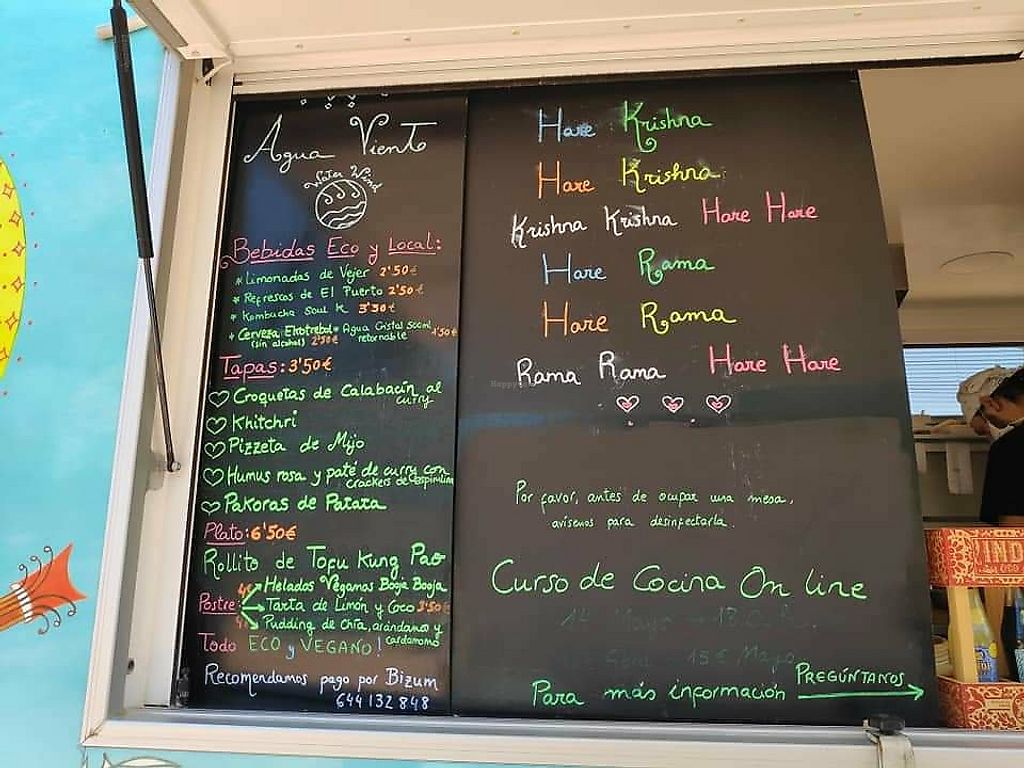 Agua Viento
Water Wind
Bebidas Eco y Local:
* Limonadas de Vejer 2'50€
* Refrescos de El Puerto 2'50€
* Kombucha Soul K 3'30€
* Cerveza
(sin alcohol) 2'50€
* Agua Cristal Social
retornable 1'50€
Tapas: 3'50€
Croquetas de Calabacín al
curry
Khitchri
Pizzeta de Mijo
Humus rosa y paté de curry con
crackers de espirulina
Pakoras de Patata
Plato: 6'50€
Rollito de Tofu Kung Pao
Postre:
4€ Helados Veganos Booja Booja
Tarta de Limón y Coco 3'50€
4€ Pudding de Chía, arándanos y
cardamomo
Todo ECO y VEGANO!
Recomendamos pago por Bizum
644132848
Hare Krishna
Hare Krishna
Krishna Krishna Hare Hare
Hare Rama
Hare Rama
Rama Rama Hare Hare
Por favor, antes de ocupar una mesa,
avísenos para desinfectarla.
Curso de Cocina On line
Para más información PREGÚNTANOS
IND